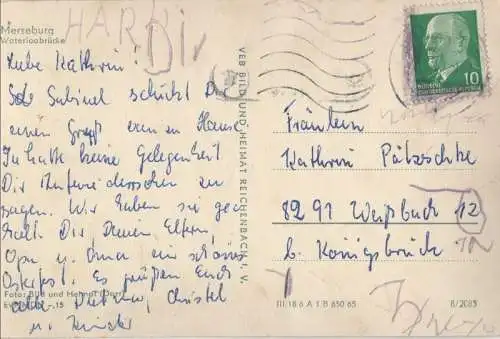 Merseburg
Waterloobrücke
HARDI
Liebe Kathrin!
Sabinel schickt Dir
einen Gruß von zu Hause.
Ich hatte keine Gelegenheit
Dir Aufwiedersehen zu
sagen. Wir haben sie geholt.
Dir Deinen Eltern,
Opa u. Oma ein schönes
Osterfest. Es grüßen Euch
alle Dietcher, Christel
u. Kinder
Foto: Bild und Heimat
15
VEB BILD UND HEIMAT REICHENBACH I. V.
10
DEUTSCHE DEMOKRATISCHE REPUBLIK
Fräulein
Kathrin Pätzschke
8291 Weißbach 12
b. Königsbrück
III 18 6 A 1 B 650 65
8/2085